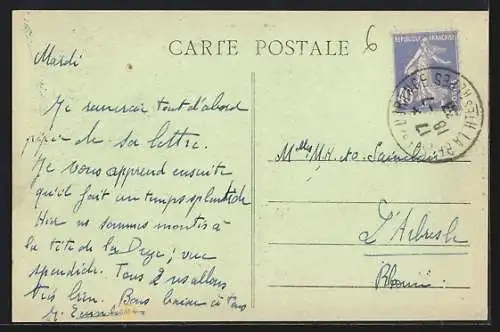 CARTE POSTALE
6
REPUBLIQUE FRANÇAISE
Mardi
Je remercie tout d'abord
de sa lettre.
Je vous apprend ensuite
qu'il fait un temps splendide
Hier ns sommes montés à
la tête de la ; vue
spendide. Tous 2 ns allons
très bien. Bons baisers à tous
Mlles M.H. et O.
L'Arbresle
Rhône